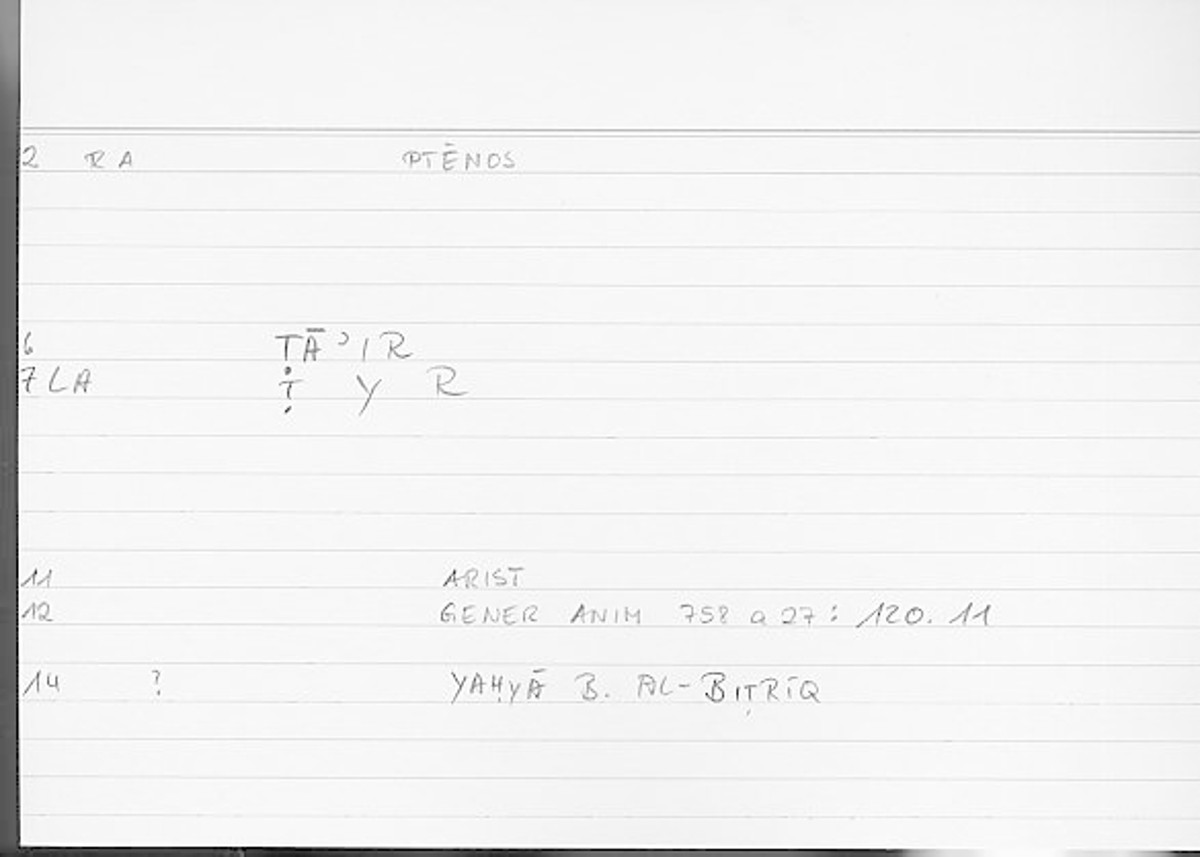 2 RA PTĒNOS
6 ṬĀʾIR
7 LA Ṭ Y R
11 ARIST
12 GENER ANIM 758 a 27 : 120. 11
14 ? YAḤYĀ B. AL-BIṬRĪQ